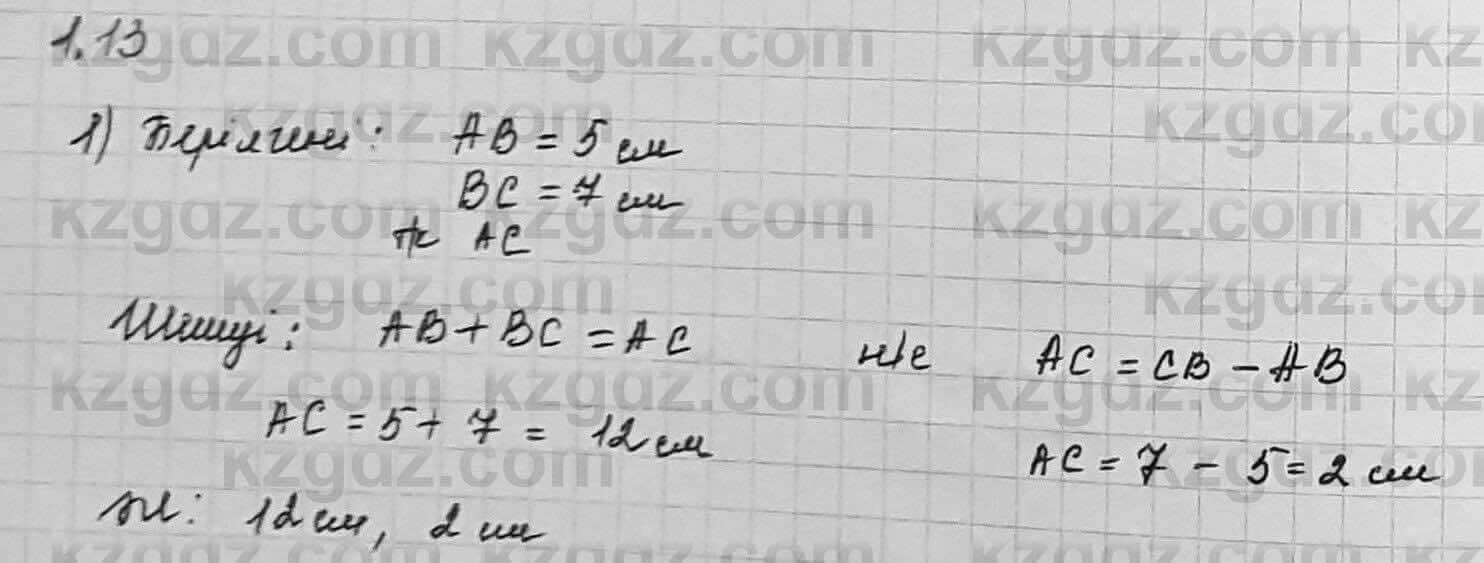 1.13
1) Берілгені: AB = 5 см
BC = 7 см
т/к AC
Шешуі: AB + BC = AC н/е AC = CB - AB
AC = 5 + 7 = 12 см AC = 7 - 5 = 2 см
жс: 12 см, 2 см
kzgdz.com